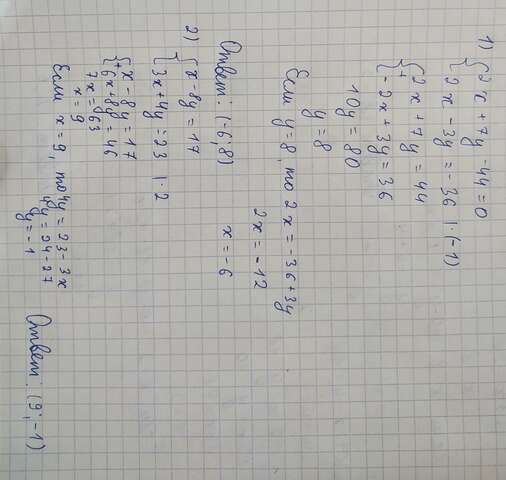 1) {2x + 7y - 44 = 0
{2x - 3y = -36 | ·(-1)
+{2x + 7y = 44
{-2x + 3y = 36
10y = 80
y = 8
Если y = 8, то 2x = -36 + 3y
2x = -12
x = -6
Ответ: (-6; 8)
2) {x - 8y = 17
{3x + 4y = 23 | ·2
+{x - 8y = 17
{6x + 8y = 46
7x = 63
x = 9
Если x = 9, то 4y = 23 - 3x
4y = 24 - 27
y = -1
Ответ: (9; -1)